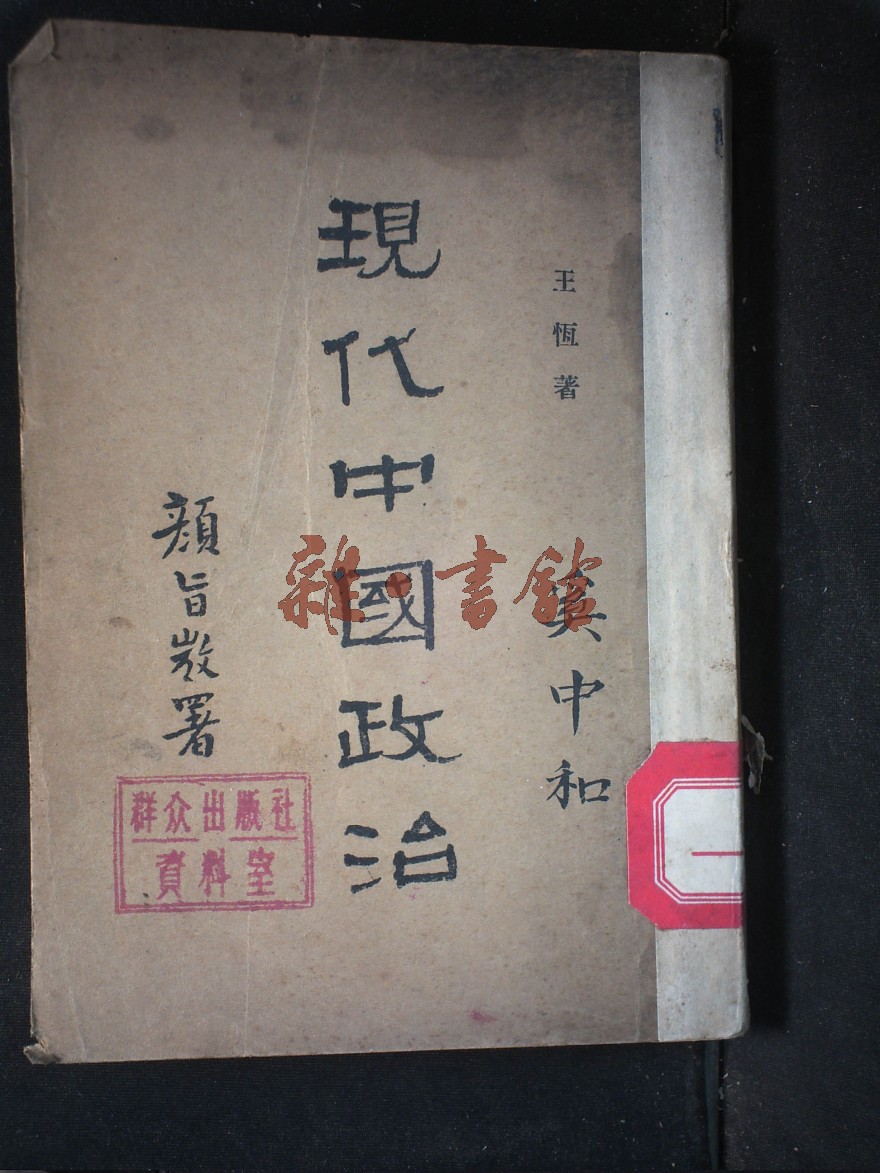 王恆著
中和
現代中國政治
顏旨敳署
雜·書館
群众出版社
資料室